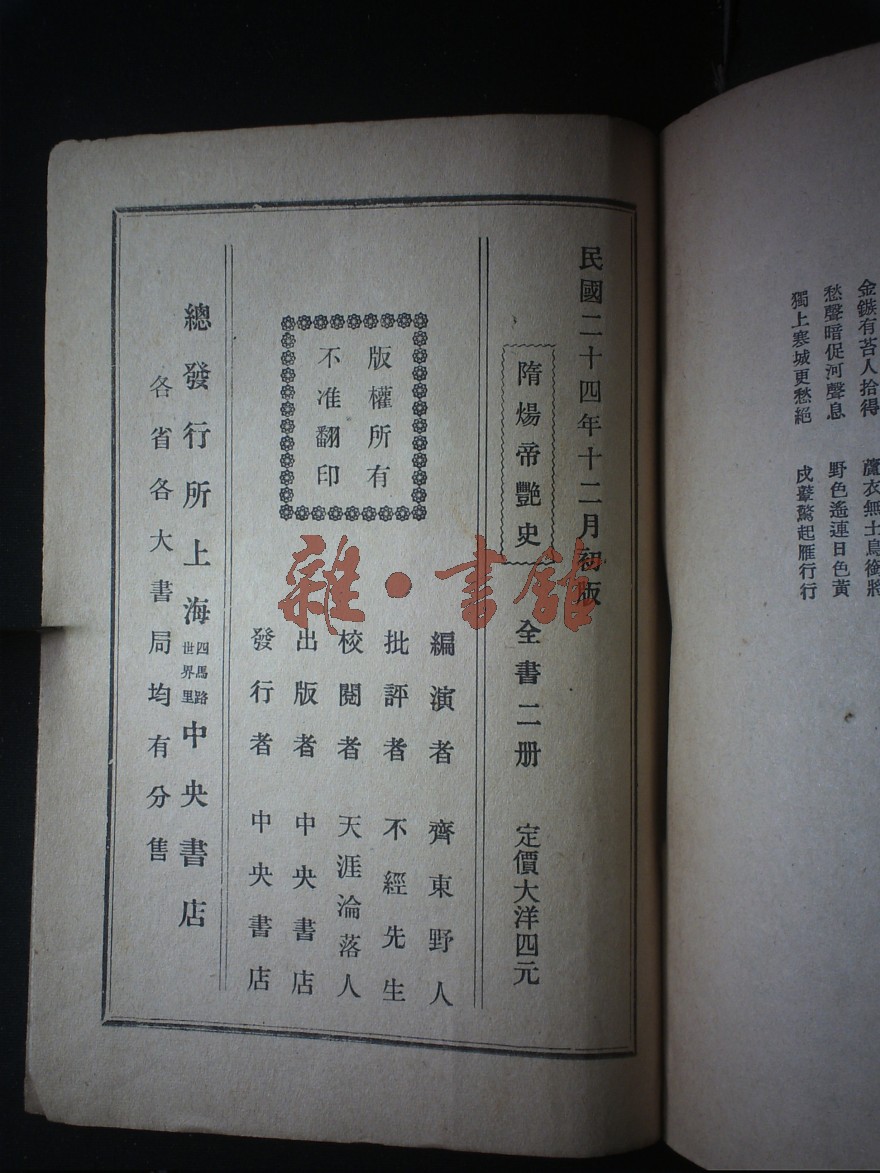 金鏃有苔人拾得
蘆衣無士鳥銜將
愁聲暗促河聲息
野色遙連日色黃
獨上寒城更愁絕
戍鼙驚起雁行行
民國二十四年十二月初版
隋煬帝艷史
全書二册
定價大洋四元
版權所有
不准翻印
編演者 齊東野人
批評者 不經先生
校閱者 天涯淪落人
出版者 中央書店
發行者 中央書店
總發行所上海四馬路世界里中央書店
各省各大書局均有分售
雜·書館